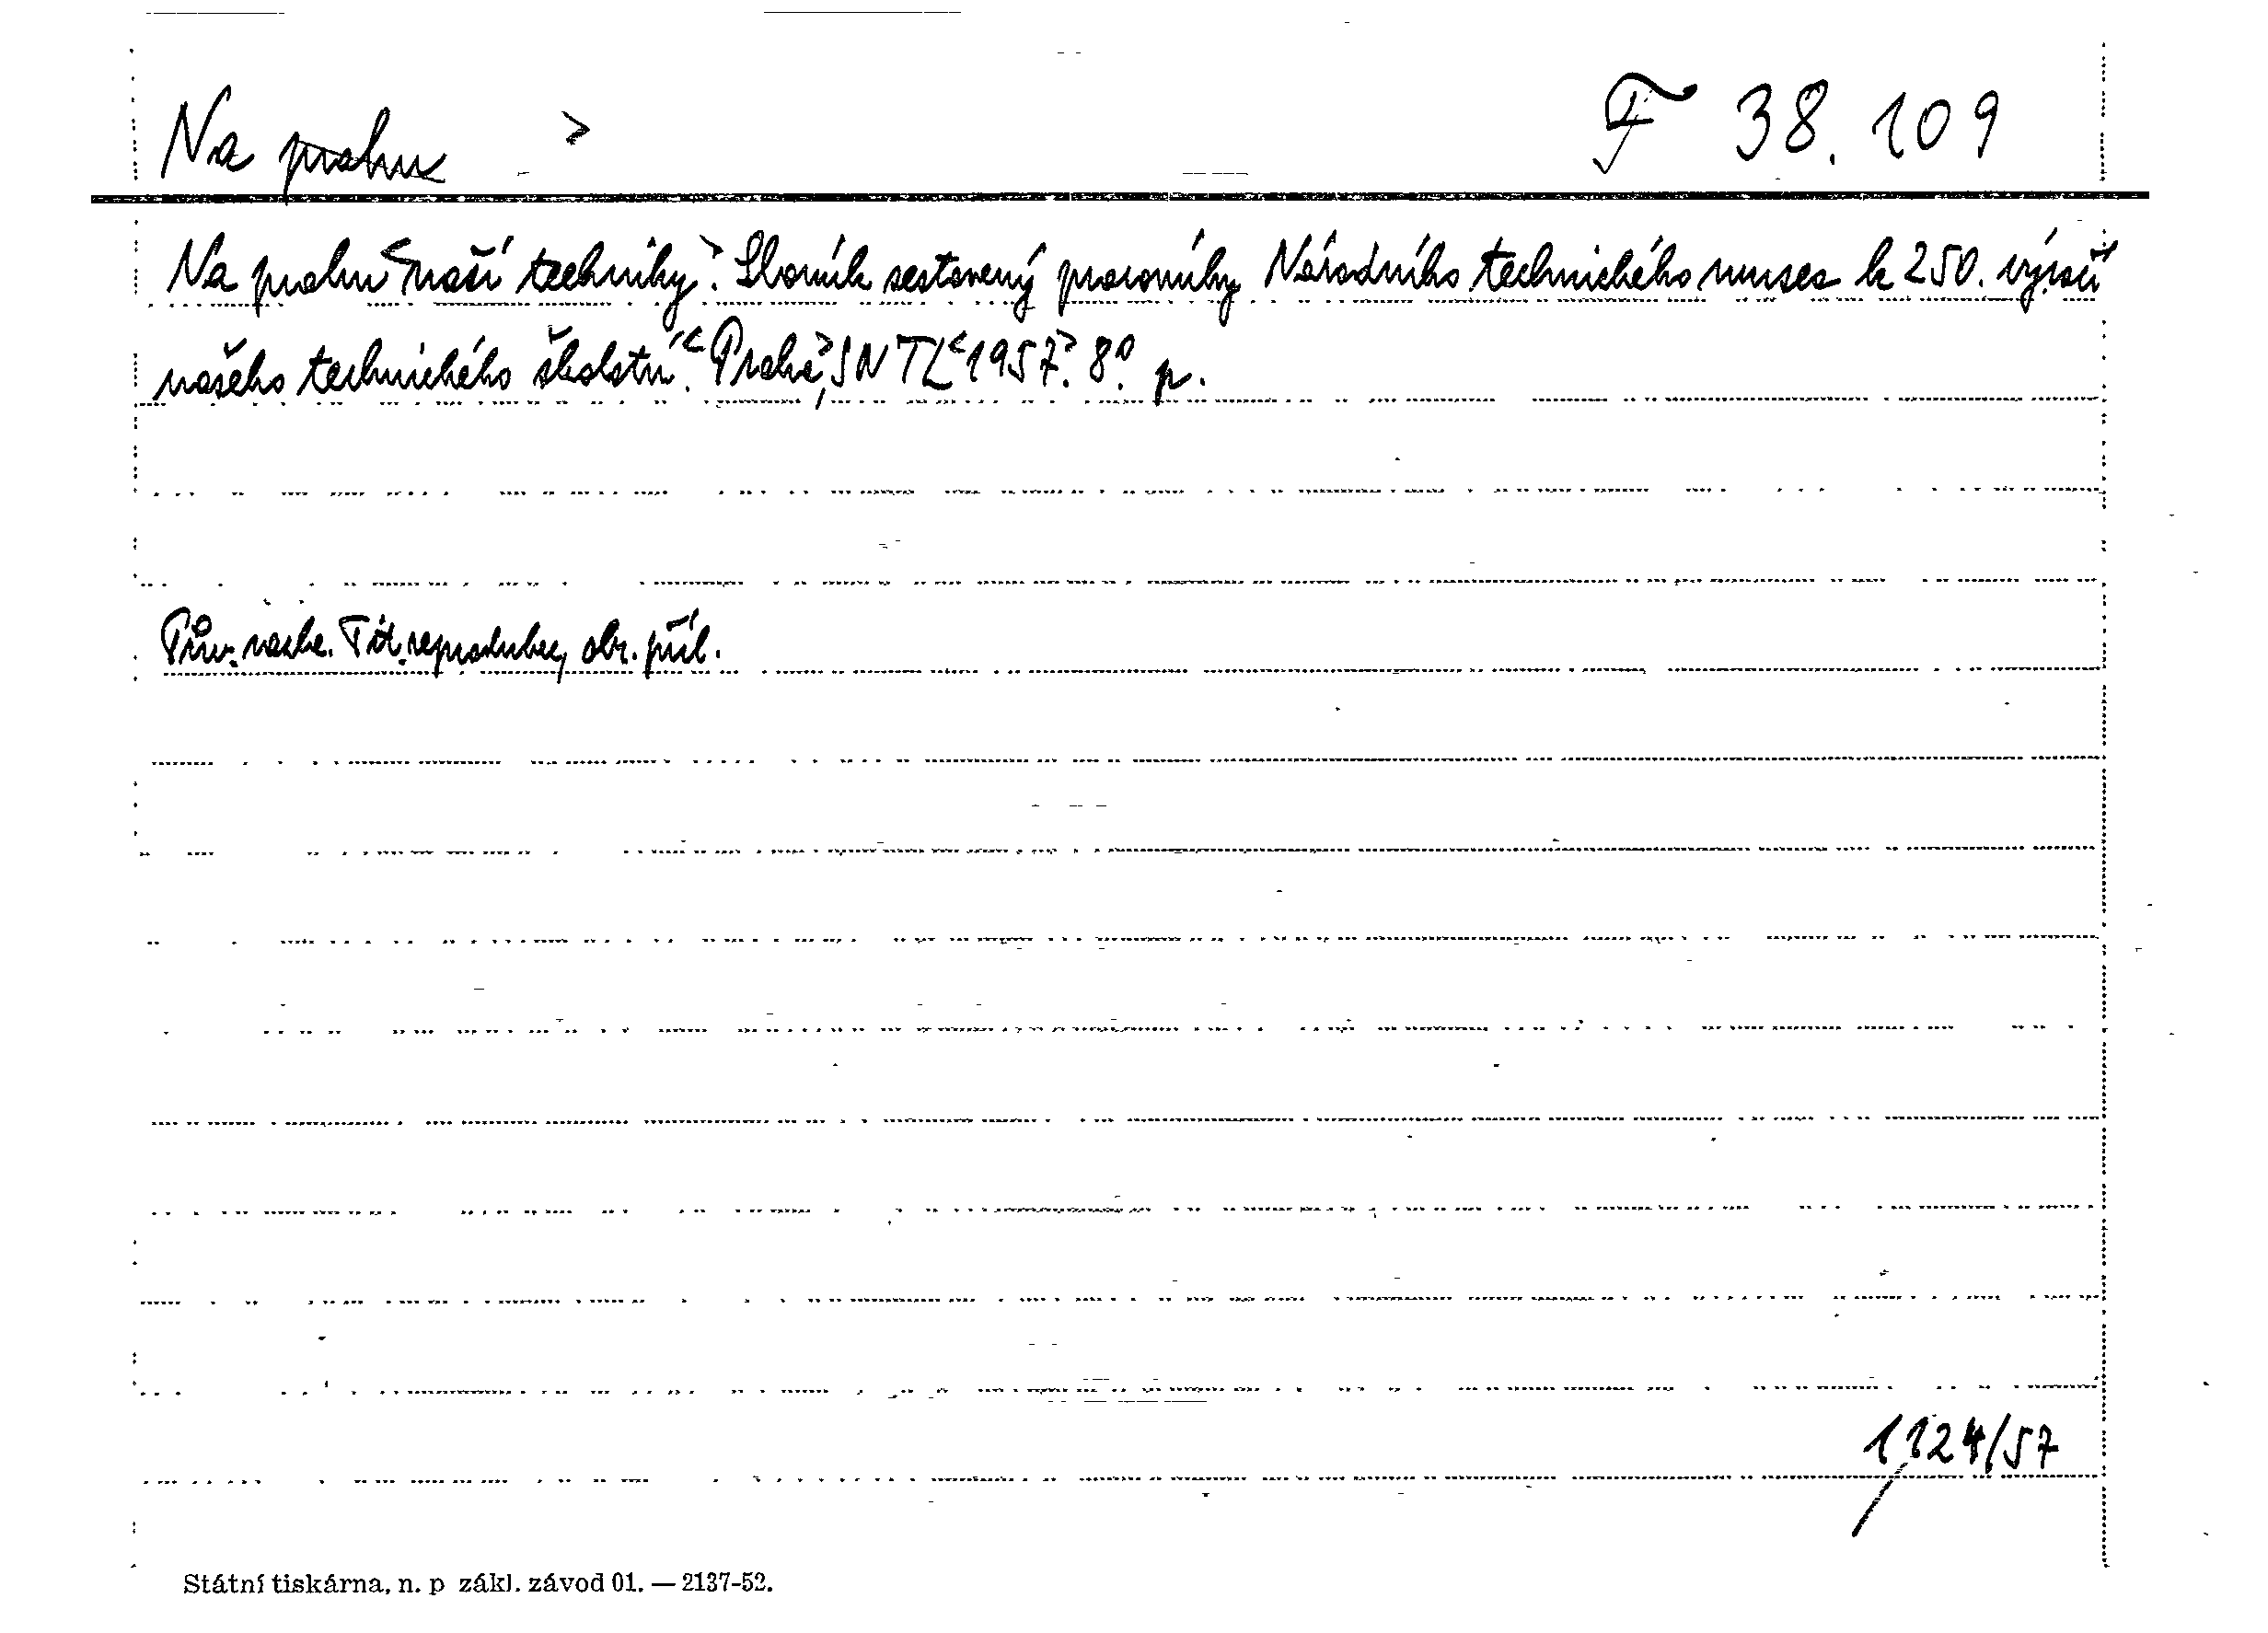 Na prahu > F 38.109
Na prahu <naší techniky>. Sborník sestavený pracovníky Národního technického musea k 250. výročí
našeho technického školství. <Praha>, SNTL <1957>. 8°. p.
Pův. vazba. Tit. reprodukce, obr. příl.
1124/57
Státní tiskárna, n. p zákl. závod 01. — 2137-52.